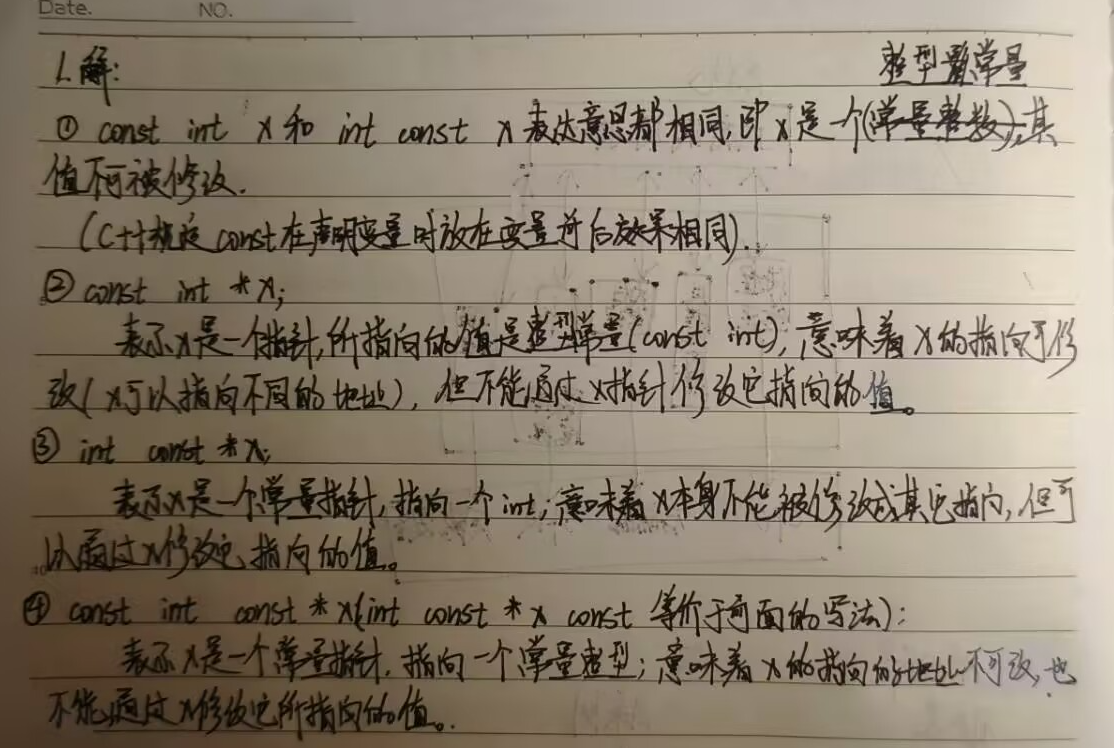 Date. NO.
1.解: 整型常量
① const int x 和 int const x 表达意思都相同,即 x 是一个(常量整数),其
值不可被修改.
(C++规定 const 在声明变量时放在变量前后效果相同).
② const int *x;
表示x是一个指针,所指向的值是整型常量(const int),意味着 x 的指向可修
改(x可以指向不同的地址),但不能通过 x指针修改它指向的值。
③ int const *x;
表示x是一个常量指针,指向一个int,意味着x本身不能被修改成其它指向,但可
以通过x修改它指向的值。
④ const int const *x(int const *x const 等价于前面的写法):
表示x是一个常量指针,指向一个常量整型;意味着x的指向的地址不可改,也
不能通过x修改它所指向的值。